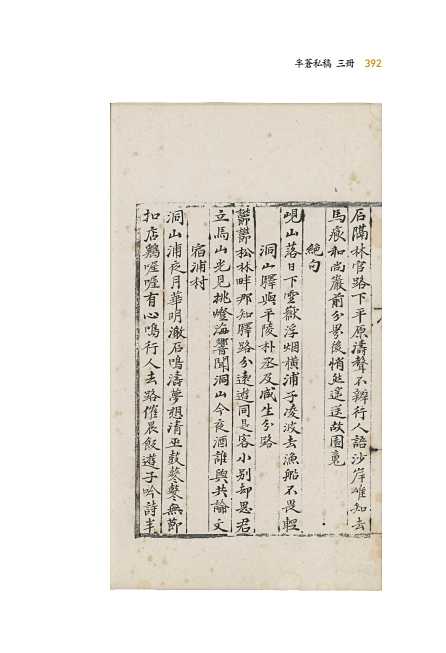 半蒼私稿 三冊 392
石隅林官路下平原濤聲不辨行人語沙岸唯知去
馬痕和尚巖前分界後悄然遙送故園魂
絶句
峴山落日下雪嶽浮烟橫浦子凌波去漁船不畏輕
洞山驛與平陵朴丞及咸生分路
鬱鬱松林畔那知驛路分遠遊同是客小別却思君
立馬山光見挑燈海響聞洞山今夜酒誰與共論文
宿浦村
洞山浦夜月華明激石鳴濤夢想清巫鼓鼕鼕無節
扣店鷄喔喔有心鳴行人去路催晨飯遊子吟詩半